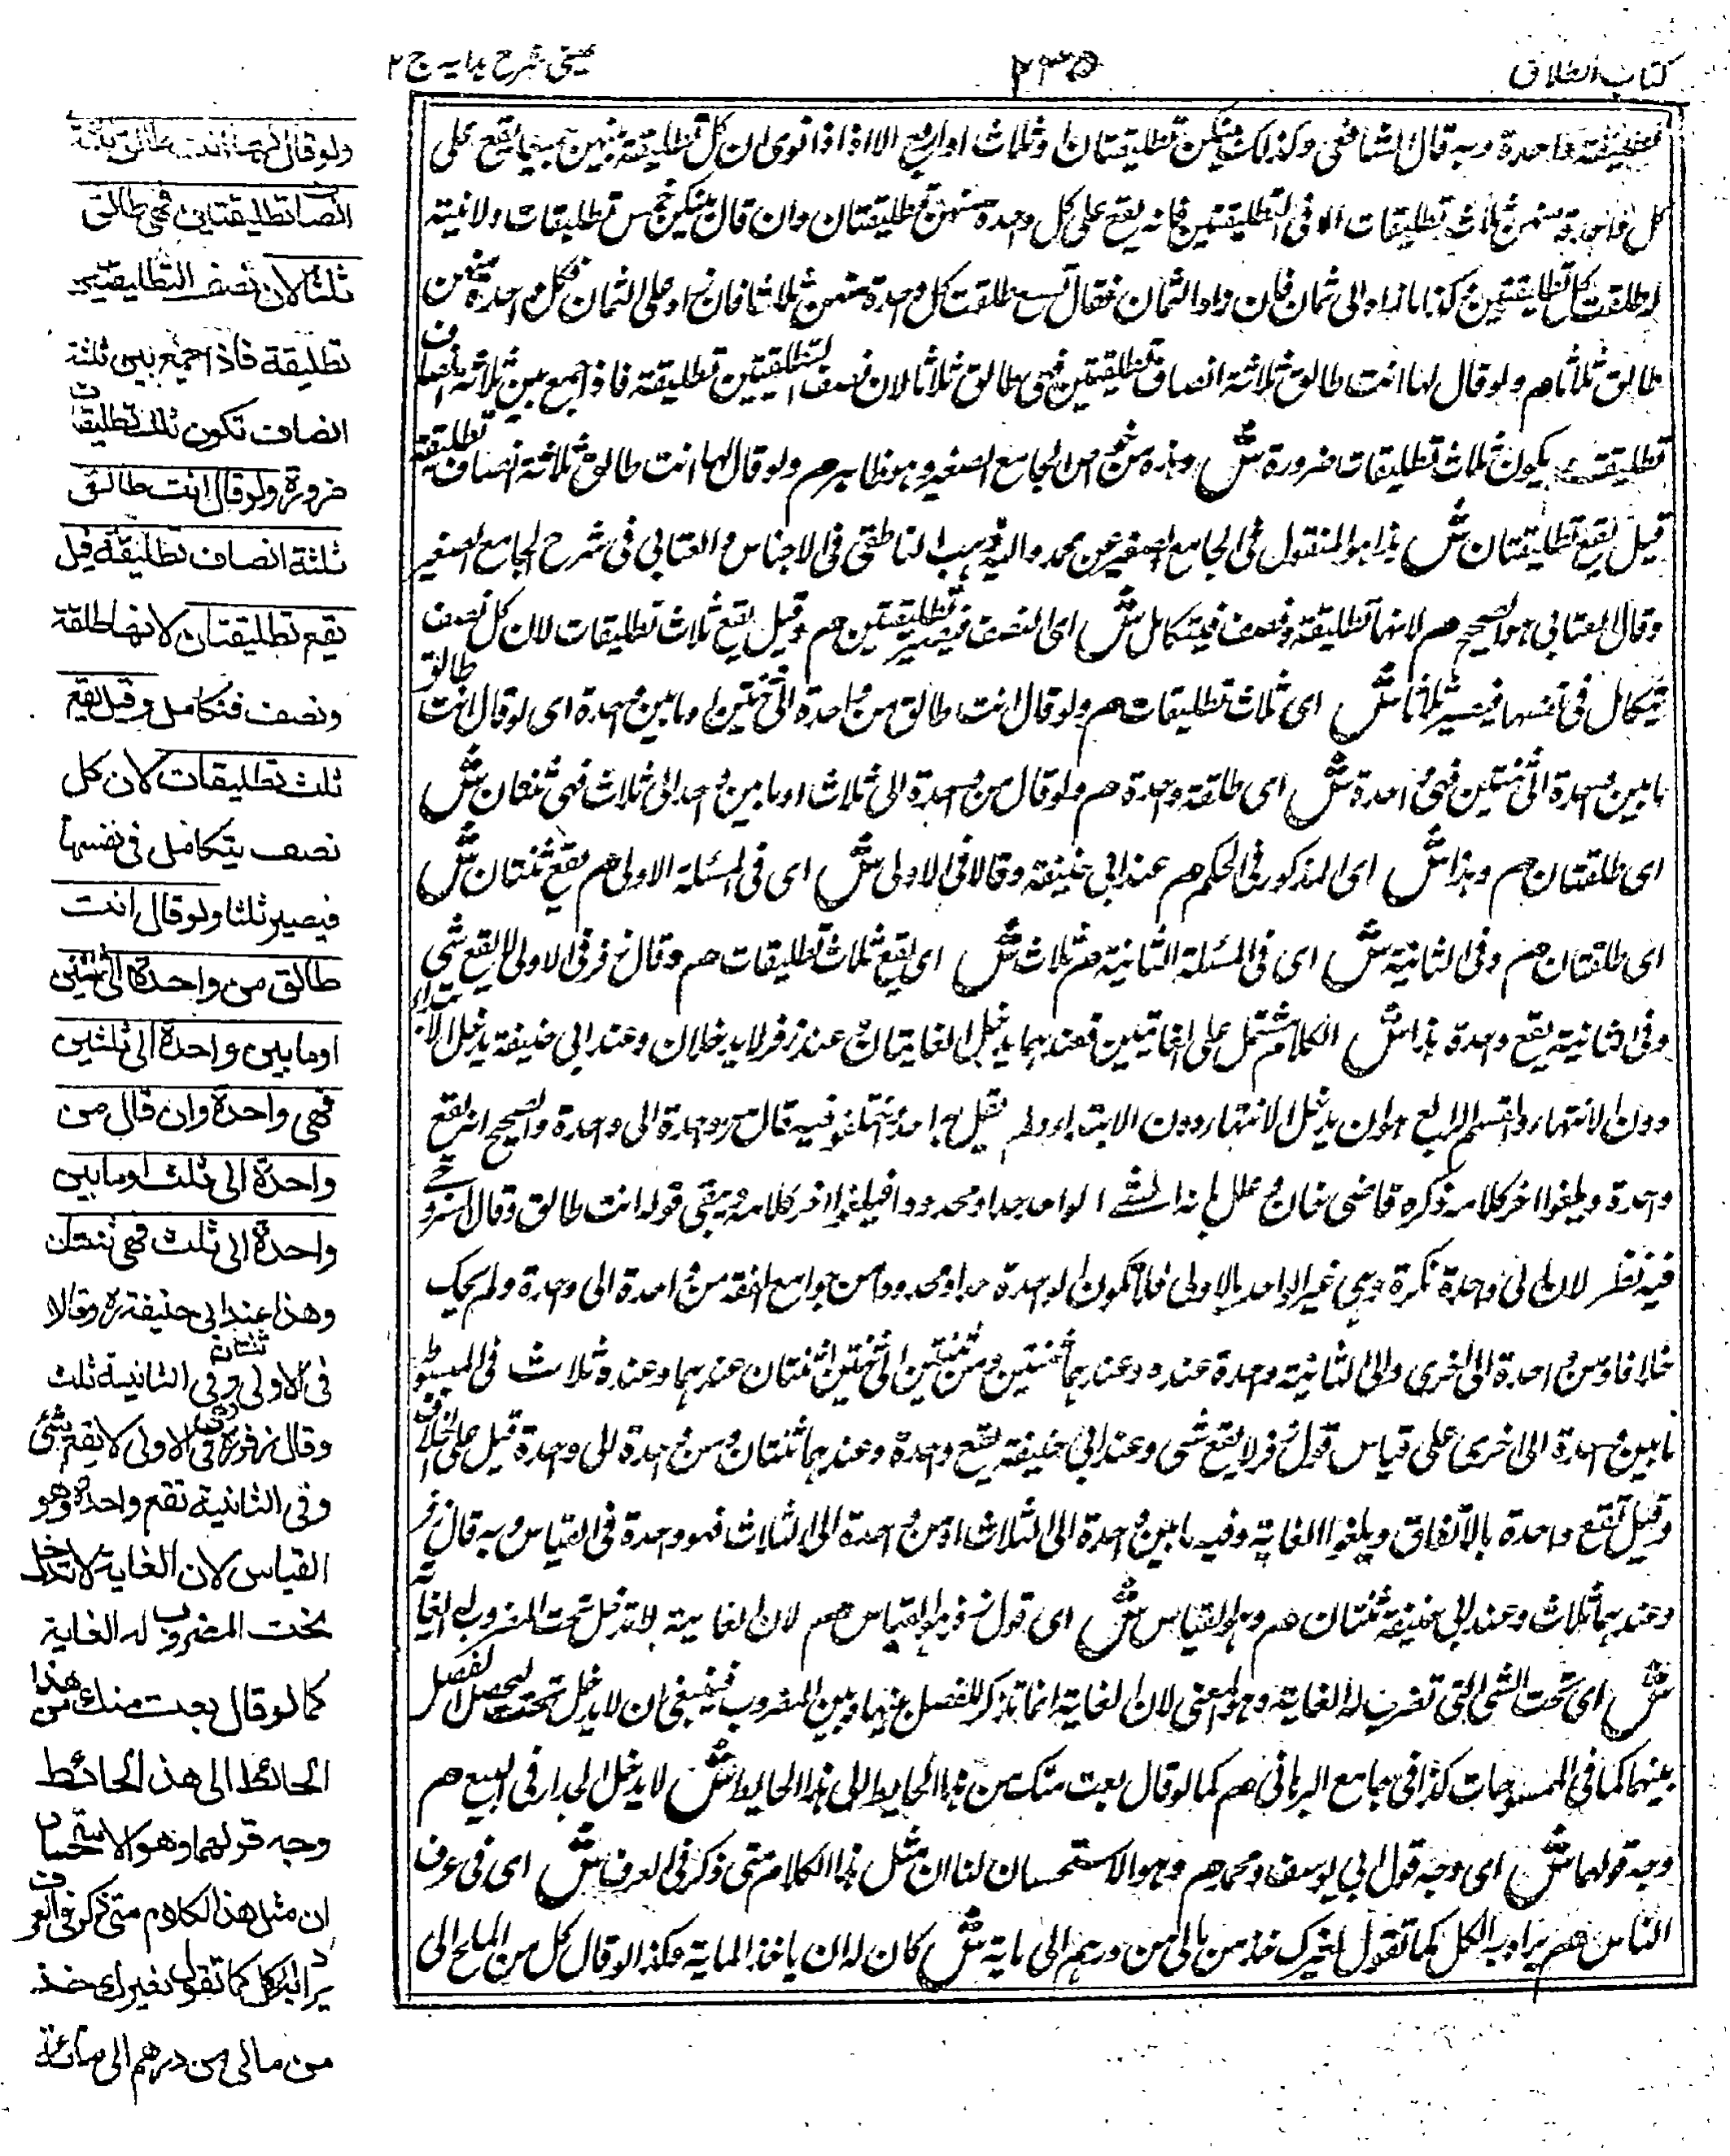 كتاب الطلاق
٢٣٥
عینی شرح ہدایہ ج ٢
واحدة وبه قال الشافعي وكذلك بينكن تطليقتان او ثلاث او اربع الا اذا نوى ان كل تطليقة بينهن جميعا يقع على
كل واحدة منهن ثلاث تطليقات الا في التطليقتين فانه يقع على كل واحدة منهن تطليقتان وان قال بينكن خمس تطليقات ولا نية
له طلقت كل تطليقتين كذا ما زاد الى ثمان فان زاد الثمان فقال تسع طلقت كل واحدة منهن ثلاثا فان زاد على الثمان فكل واحدة منهن
طالق ثلاثا م ولو قال لها انت طالق ثلاثة انصاف تطليقتين فهي طالق ثلاثا لان نصف التطليقتين تطليقة فاذا جمع بين ثلاثة انصاف
تطليقتين يكون ثلاث تطليقات ضرورة ش وهذه من خواص الجامع الصغير وهو ظاهر م ولو قال لها انت طالق ثلاثة انصاف تطليقة
قيل يقع تطليقتان ش هذا هو المنقول في الجامع الصغير عن محمد واليه ذهب الناطفي في الاجناس والعتابي في شرح الجامع الصغير
وقال العتابي هو الصحيح م لانها تطليقة ونصف فيتكامل ش اي النصف فيصير تطليقتين م وقيل يقع ثلاث تطليقات لان كل نصف
يتكامل في نفسها فيصير ثلاثا ش اي ثلاث تطليقات م ولو قال انت طالق من واحدة الى ثنتين او ما بين واحدة اي لو قال انت طالق
ما بين واحدة الى ثنتين فهي واحدة ش اي طلقة واحدة م ولو قال من واحدة الى ثلاث او ما بين واحدة الى ثلاث فهي ثنتان ش
اي طلقتان م وهذا ش اي المذكور في الحكم م عند ابي حنيفة وقالا في الاولى ش اي في المسئلة الاولى م يقع ثنتان ش
اي طلقتان م وفي الثانية ش اي في المسئلة الثانية م ثلاث ش اي يقع ثلاث تطليقات م وقال زفر في الاولى لا يقع شي
وفي الثانية يقع واحدة هذا ش الكلام مشتمل على الغايتين فعندهما يدخل الغايتان وعند زفر لا يدخلان وعند ابي حنيفة يدخل الابتداء
دون الانتهاء والقسم الرابع هو ان يدخل الانتهاء دون الابتداء ولم يقل به احد اختلفو فيه قال من واحدة الى واحدة والصحيح انه يقع
واحدة ويلغوا اخر كلامه ذكره قاضي خان وعلل بان الشئ الواحد حدا ومحدودا فيلغوا اخر كلامه ويبقى قوله انت طالق وقال السروجي
فيه نظر لان الى واحدة نكرة وهي غير الواحد بالاولى فلا تكون الواحدة حدا ومحدودا من جوامع الفقه من واحدة الى واحدة ولم يحك
خلافا ومن واحدة الى اخرى والى الثانية واحدة عنده وعندهما ثنتين ومن ثنتين الى ثنتين ثنتان عندهما وعنده وثلاث في المبسوط
ما بين واحدة الى اخرى على قياس قول زفر لا يقع شي وعند ابي حنيفة يقع واحدة وعندهما ثنتان ومن واحدة الى واحدة قيل على الخلاف
وقيل تقع واحدة بالاتفاق ويلغوا الغاية وفيه ما بين واحدة الى الثلاث او من واحدة الى الثلاث فهو واحدة في القياس وبه قال زفر
وعندهما ثلاث وعند ابي حنيفة ثنتان م وهو القياس ش اي قول زفر هو القياس م لان الغاية لا تدخل تحت المضروب له الغاية
ش اي تحت الشئ التي تضرب له الغاية وهو المعنى لان الغاية انما تذكر للفصل بينها وبين المضروب فينبغي ان لا يدخل تحت ليحصل الفصل
بينهما كما في الممسوحات كذا في جامع البرهاني م كما لو قال بعت منك من هذا الحايط الى هذا الحايط ش لا يدخل الجدار في البيع م
وجه قولهما ش اي وجه قول ابي يوسف ومحمد م وهو الاستحسان لنا ان مثل هذا الكلام متى ذكر في العرف ش اي في عرف
الناس م يراد به الكل كما تقول لغيرك خذ من مالي من درهم الى ماية ش كان له ان ياخذ الماية وكذا لو قال كل من الملح الى
ولو قال لها انت طالق ثلثة
انصاف تطليقتين فهي طالق
ثلثا لان نصف التطليقتين
تطليقة فاذا جمع بين ثلثة
انصاف تكون ثلث تطليقات
ضرورة ولو قال انت طالق
ثلثة انصاف تطليقة قيل
يقع تطليقتان لانها طلقة
ونصف فتكامل وقيل يقع
ثلث تطليقات لان كل
نصف يتكامل في نفسها
فيصير ثلثا ولو قال انت
طالق من واحدة الى ثنتين
او ما بين واحدة الى ثنتين
فهي واحدة وان قال من
واحدة الى ثلث او ما بين
واحدة الى ثلث فهي ثنتان
وهذا عند ابي حنيفة ره وقالا
في الاولى ثنتان وفي الثانية ثلث
وقال زفر ره في الاولى لا يقع شئ
وفي الثانية تقع واحدة وهو
القياس لان الغاية لا تدخل
تحت المضروب له الغاية
كما لو قال بعت منك من هذا
الحائط الى هذا الحائط
وجه قولهما وهو الاستحسان
ان مثل هذا الكلام متى ذكر في العرف
يراد به الكل كما تقول لغيرك خذ
من مالي من درهم الى مائة